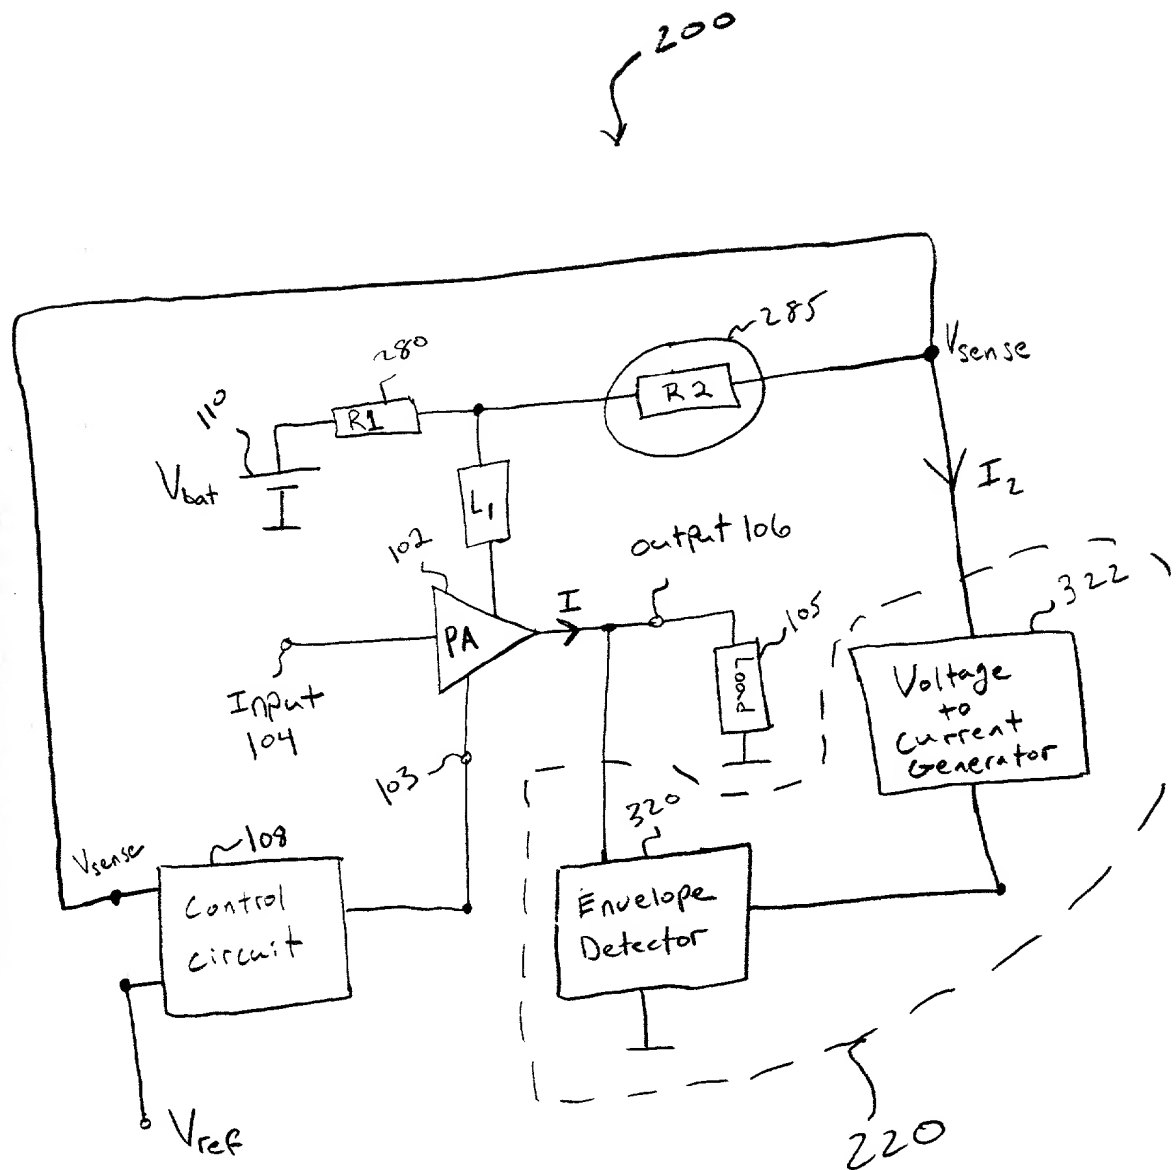 200
285
Vsense
280
R2
110
R1
Vbat
L1
I2
102
output 106
322
I
105
PA
Load
Voltage
to
Current
Generator
Input
104
103
320
108
Vsense
Control
circuit
Envelope
Detector
Vref
220